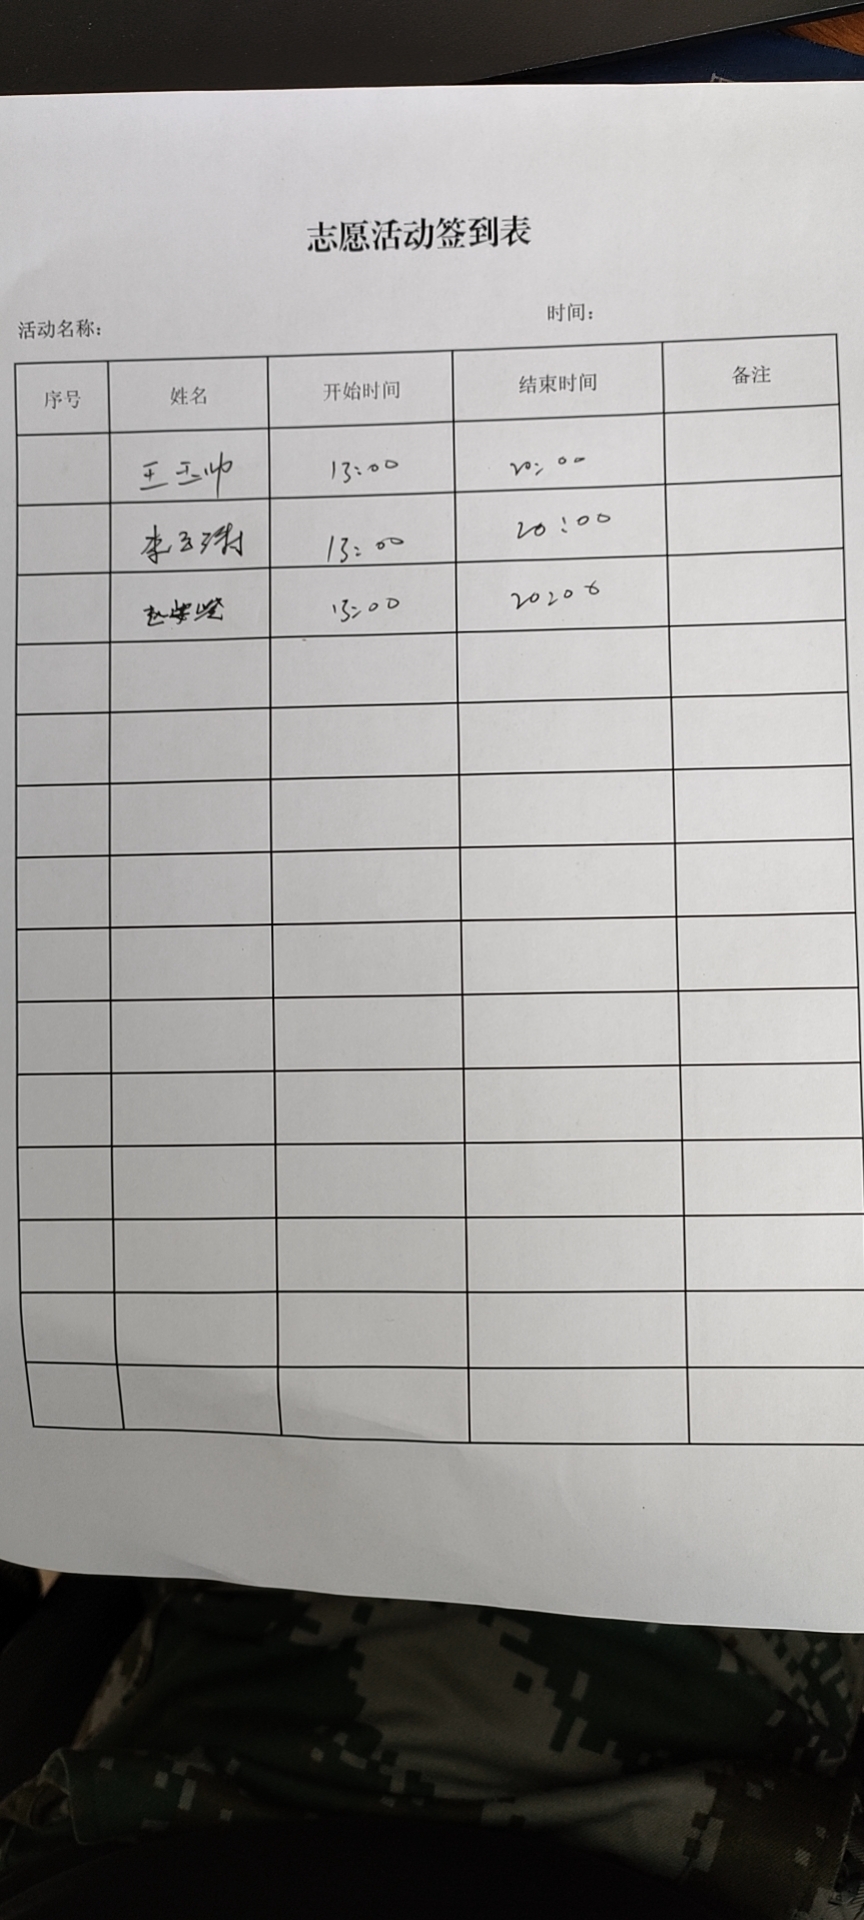 志愿活动签到表
活动名称： 时间：
序号 姓名 开始时间 结束时间 备注
王玉帅 13:00 20:00
李 13:00 20:00
赵 13:00 20:00